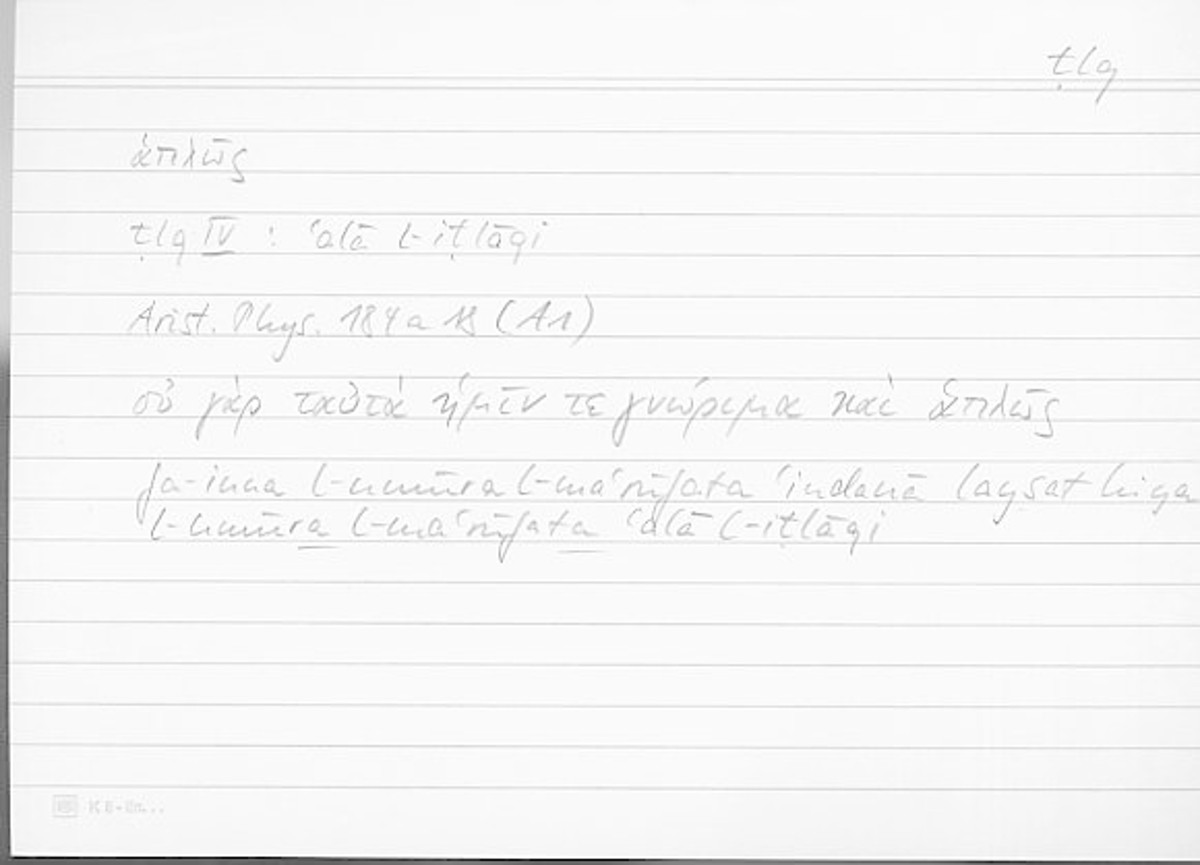 ṭlq
ἁπλῶς
ṭlq IV : ʿalā l-iṭlāqi
Arist. Phys. 184a18 (A1)
οὐ γὰρ ταὐτὰ ἡμῖν τε γνώριμα καὶ ἁπλῶς
fa-inna l-umūra l-maʿrūfata ʿindanā laysat hiya
l-umūra l-maʿrūfata ʿalā l-iṭlāqi